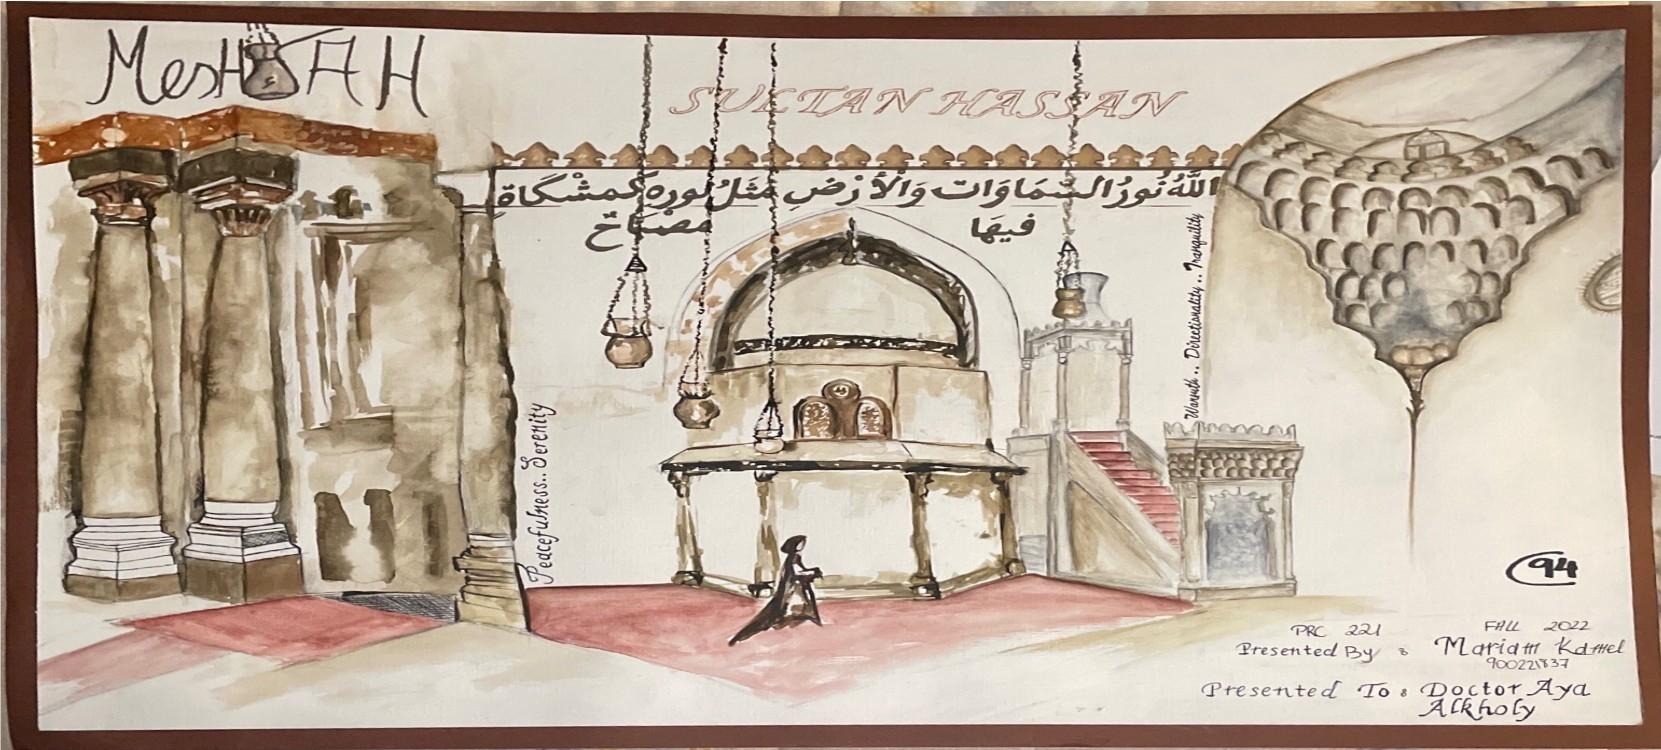 MesH AH
SULTAN HASSAN
اللَّهُ نُورُ السَّمَاوَات وَالْأَرْضِ مَثَلُ نُوره كَمشْكَاةٍ
فيهَا مصْبَاحٌ
Peacefulness.. Serenity
Warmth .. Directionality .. Tranquility
94
PRC 221 FALL 2022
Presented By : Mariam Kamel
900221837
Presented To : Doctor Aya
Alkholy